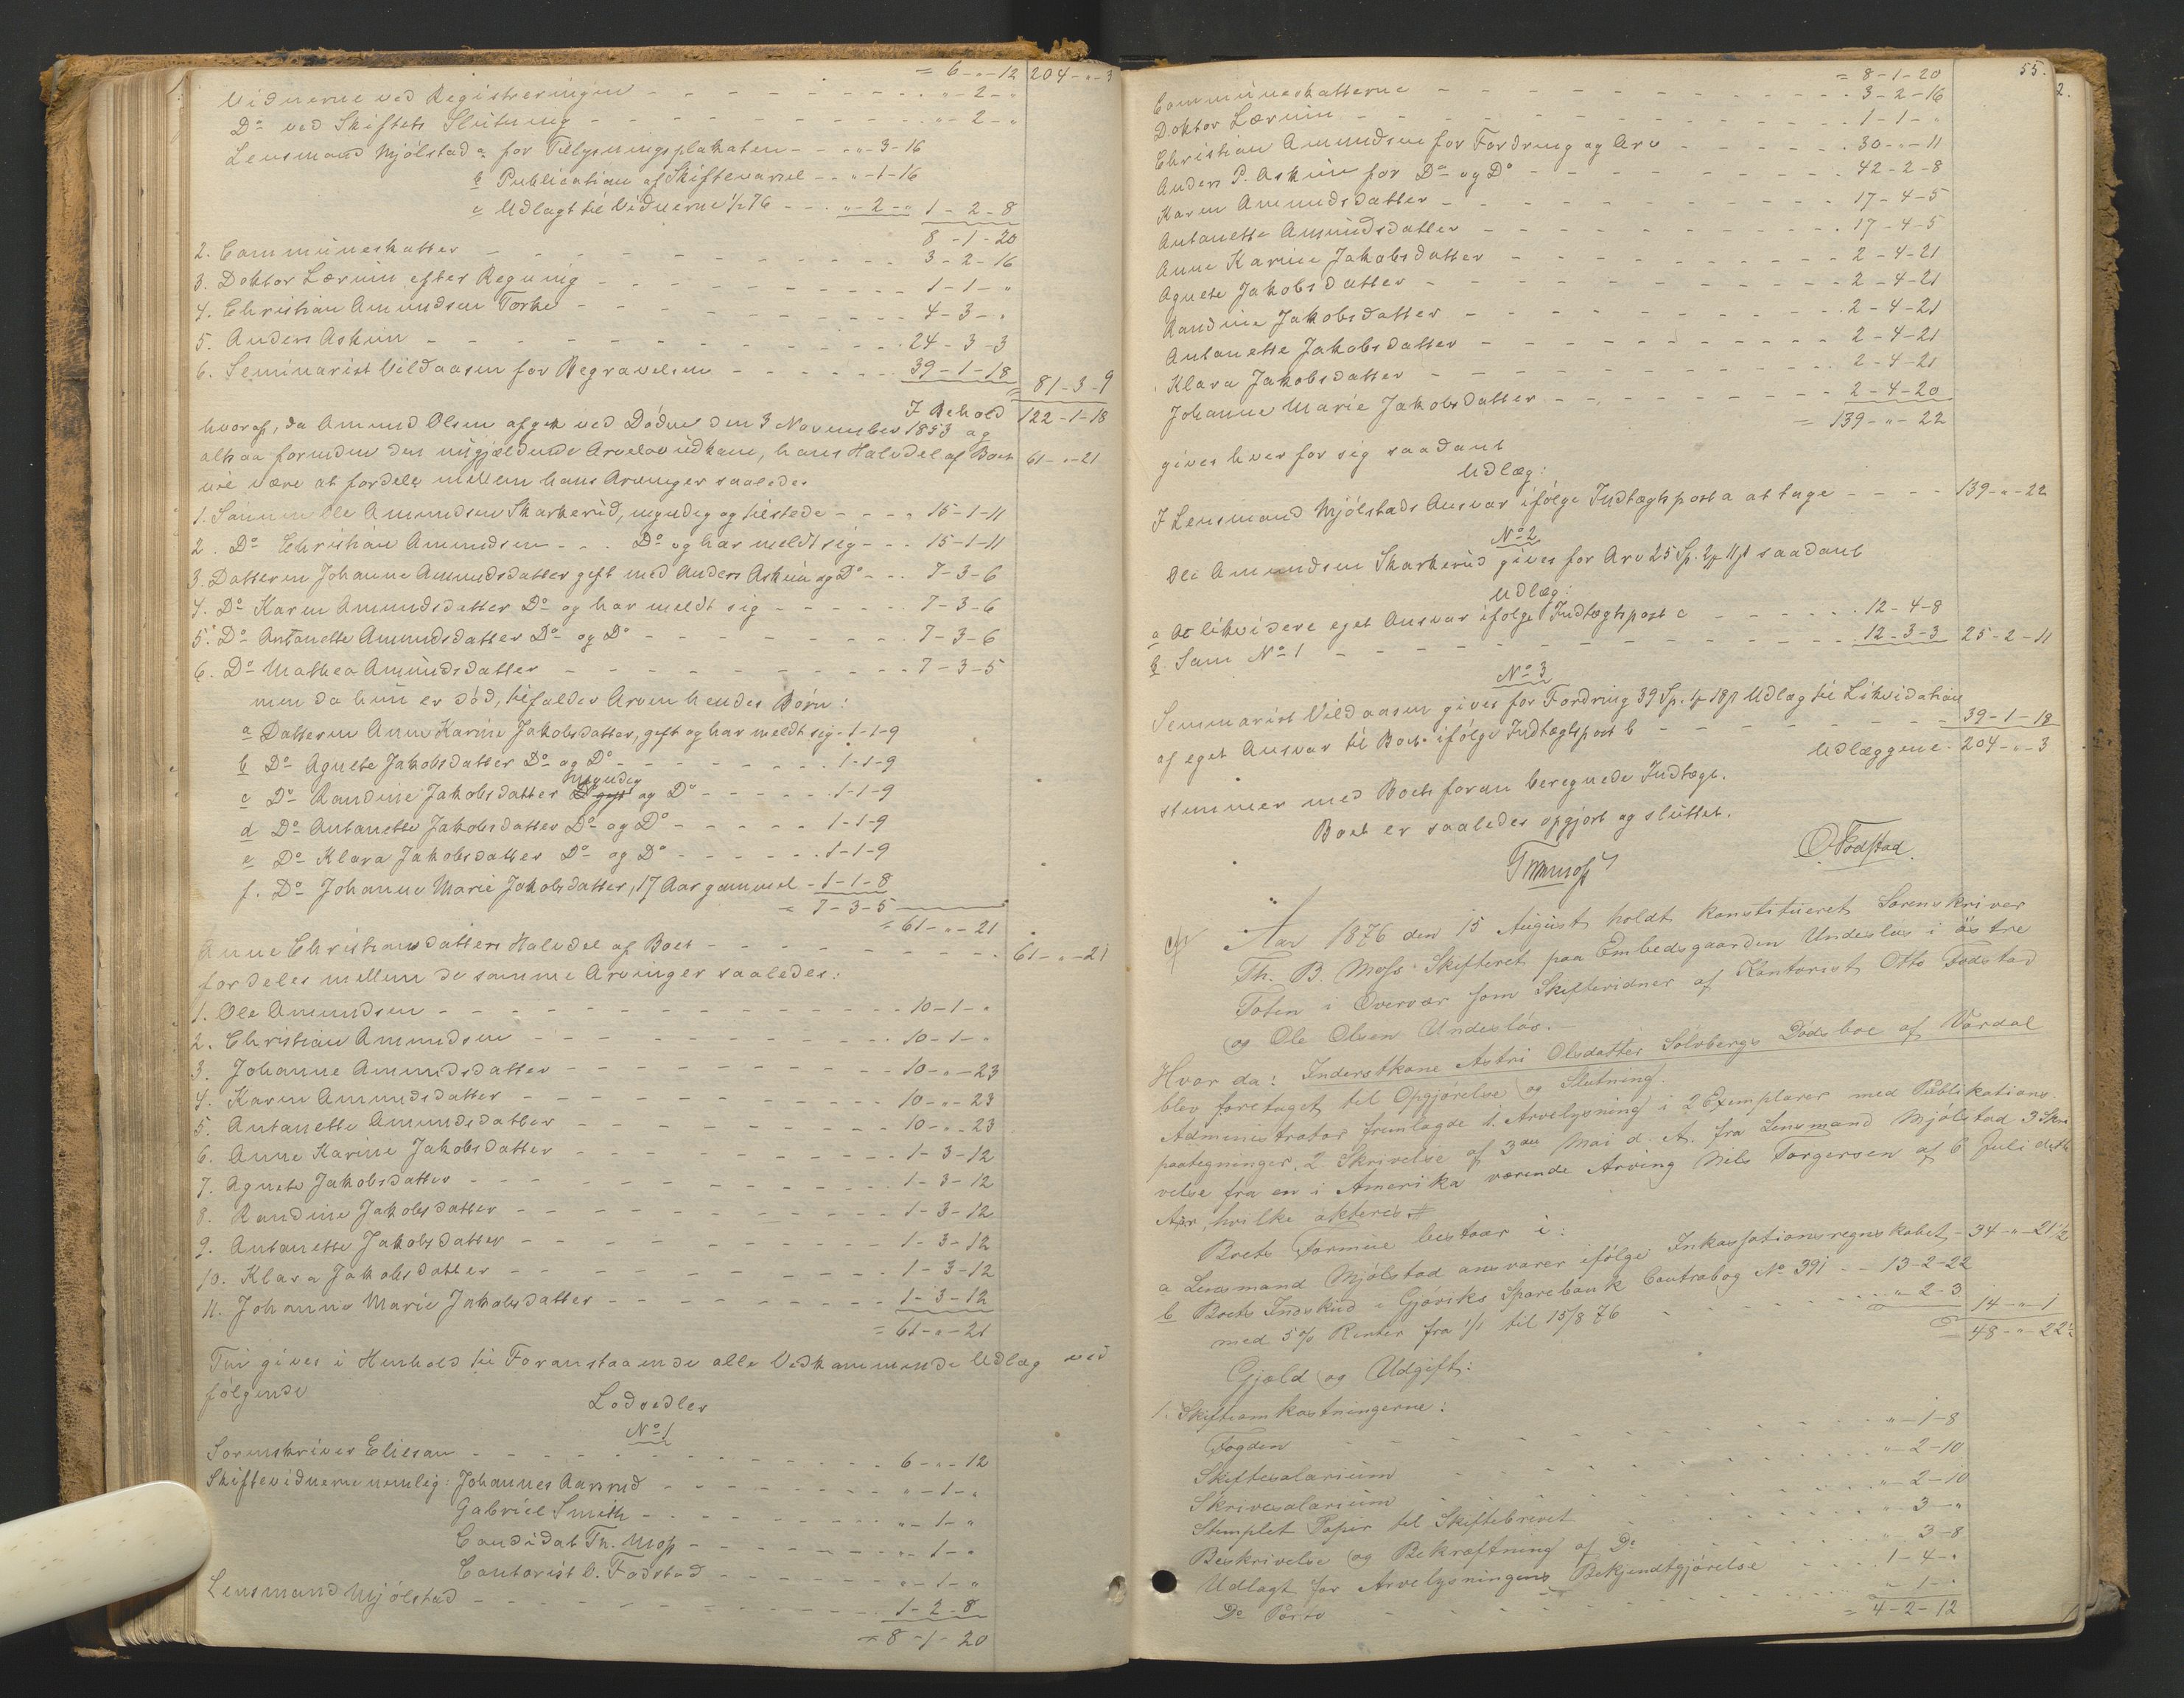 = 6-"-12 204-"-3
Vidnerne ved Registreringen - - - "-2-"
Do ved Skiftets Slutning - - - "-2-"
Lensmand Mjølstad a for Tillysningsplakaten - - "-3-16
b Publication af Skiftevarsel - - "-1-16
c Udlagt til Vidnerne 1/2 76 - - - "-2-" 1-2-8
8-1-20
2. Communeskatter - - - 3-2-16
3. Doktor Lærum efter Regning - - - 1-1-"
4. Christian Amundsen Torke - - - 4-3-"
5. Anders Askim - - - 24-3-3
6. Seminarist Vildaasen for Begravelsen - - - 39-1-18 = 81-3-9
I Behold 122-1-18
hvoraf, da Amund Olsen afgik ved Døden den 3 November 1853 og
altsaa forinden den nugjældende Arvelov udkom, hans Halvdel af Boet 61-"-21
vil være at fordele mellem hans Arvinger saaledes
1. Sønnen Ole Amundsen Skarkerud, myndig og tilstede - - - 15-1-11
2. Do Christian Amundsen - - Do og har meldt sig - - 15-1-11
3. Datteren Johanne Amundsdatter gift med Anders Askim og Do - - 7-3-6
4. Do Karen Amundsdatter Do og har meldt sig - - - 7-3-6
5. Do Antonette Amundsdatter Do og Do - - - 7-3-6
6. Do Mathea Amundsdatter - - - 7-3-5
men da hun er død, tilfalder Arven hendes Børn:
a Datteren Anne Karine Jakobsdatter, gift og har meldt sig - 1-1-9
b Do Agnethe Jakobsdatter Do og Do - - - 1-1-9
myndig
c Do Randine Jakobsdatter Do gift og Do - - - 1-1-9
d Do Antonette Jakobsdatter Do og Do - - - 1-1-9
e Do Klara Jakobsdatter Do og Do - - - 1-1-9
f. Do Johanne Marie Jakobsdatter, 17 Aar gammel - 1-1-8
= 7-3-5
= 61-"-21
Anne Christiansdatters Halvdel af Boet - - - 61-"-21
fordeles mellem de samme Arvinger saaledes:
1. Ole Amundsen - - - 10-1-"
2. Christian Amundsen - - - 10-1-"
3. Johanne Amundsdatter - - - 10-"-23
4. Karen Amundsdatter - - - 10-"-23
5. Antonette Amundsdatter - - - 10-"-23
6. Anne Karine Jakobsdatter - - - 1-3-12
7. Agnete Jakobsdatter - - - 1-3-12
8. Randine Jakobsdatter - - - 1-3-12
9. Antonette Jakobsdatter - - - 1-3-12
10. Klara Jakobsdatter - - - 1-3-12
11. Johanne Marie Jakobsdatter - - - 1-3-12
= 61-"-21
Thi gives i Henhold til Foranstaaende alle Vedkommende Udlæg ved
følgende
Lodsedler
No 1
Sorenskriver Eliesen - - - 6-"-12
Skiftevidnerne nemlig: Johannes Aasrud - - - "-1-"
Gabriel Smith - - - "-1-"
Candidat Th. Moss - - - "-1-"
Contorist O. Fodstad - - - "-1-"
Lensmand Mjølstad - - - 1-2-8
= 8-1-20
55.
2.
= 8-1-20
Communeskatterne - - - 3-2-16
Doktor Lærum - - - 1-1-"
Christian Amundsen for Fordring og Arv - - - 30-"-11
Anders P. Askim for Do og Do - - - 42-2-8
Karen Amundsdatter - - - 17-4-5
Antonette Amundsdatter - - - 17-4-5
Anne Karine Jakobsdatter - - - 2-4-21
Agnete Jakobsdatter - - - 2-4-21
Randine Jakobsdatter - - - 2-4-21
Antonette Jakobsdatter - - - 2-4-21
Klara Jakobsdatter - - - 2-4-21
Johanne Marie Jakobsdatter - - - 2-4-20
= 139-"-22
gives hver for sig saadant
Udlæg:
I Lensmand Mjølstads Ansvar ifølge Indtægtspost a at tage - - - 139-"-22
No 2
Ole Amundsen Skarkerud gives for Arv 25 Sp. 2 # 11 s saadant
Udlæg:
a At likvidere eget Ansvar ifølge Indtægtspost c - - - 12-4-8
b. Som No 1 - - - 12-3-3 25-2-11
No 3
Seminarist Vildaasen gives for Fordring 39 Sp. 1 # 18 s Udlæg til Likvidation
af eget Ansvar til Boet ifølge Indtægtspost b - - - = 39-1-18
Udlæggene 204-"-3
stemmer med Boets foran beregnede Indtægt.
Boet er saaledes opgjort og sluttet.
Th Moss O Fodstad.
Aar 1876 den 15 August holdt konstitueret Sorenskriver
Th. B. Moss Skifteret paa Embedsgaarden Undesløs i östre
Toten i Overvær som Skiftevidner af Kontorist Otto Fodstad
og Ole Olsen Undeslös.
Hvor da: Inderstkone Astri Olsdatter Sølvbergs Dödsboe af Vardal
blev foretaget til Opgjörelse og Slutning.
Administrator fremlagde 1. Arvelysning i 2 Exemplarer med Publikations-
paategninger, 2 Skrivelse af 3die Mai d. A. fra Lensmand Mjölstad 3 Skri
velse fra en i Amerika værende Arving Nils Torgersen af 6 Juli dette
Aar, hvilke akteres.
Boets Formue bestaar i:
a Lensmand Mjölstad ansvarer ifølge Inkassationsregnskabet - 34-"-21½
b Boets Indskud i Gjöviks Sparebank Contrabog No 391 - - 13-2-22
med 5% Renter fra 1/1 til 15/8 76 - - - "-2-3 14-"-1
= 48-"-22½
Gjæld og Udgift:
1. Skifteomkostningerne:
Fogden - - - "-1-8
Skiftesalarium - - - "-2-10
Skrivesalarium - - - "-2-10
Stemplet Papir til Skiftebrevet - - - "-3-"
Beskrivelse og Bekræftning af Do - - - "-3-8
Udlagt for Arvelysningens Bekjendtgjörelse - - - 1-4-"
Do Porto - - - "-1-"
= 4-2-12